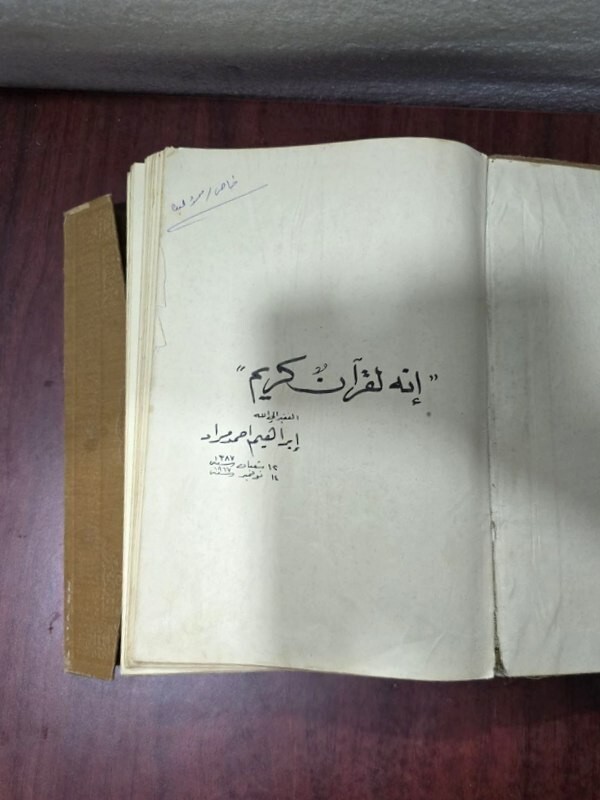 خاص /
"إنه لقرآنٌ كريم"
الفقير إلى الله
إبراهيم احمد مراد
١٢ شعبان سنة ١٣٨٧
١٤ نوفمبر سنة ١٩٦٧